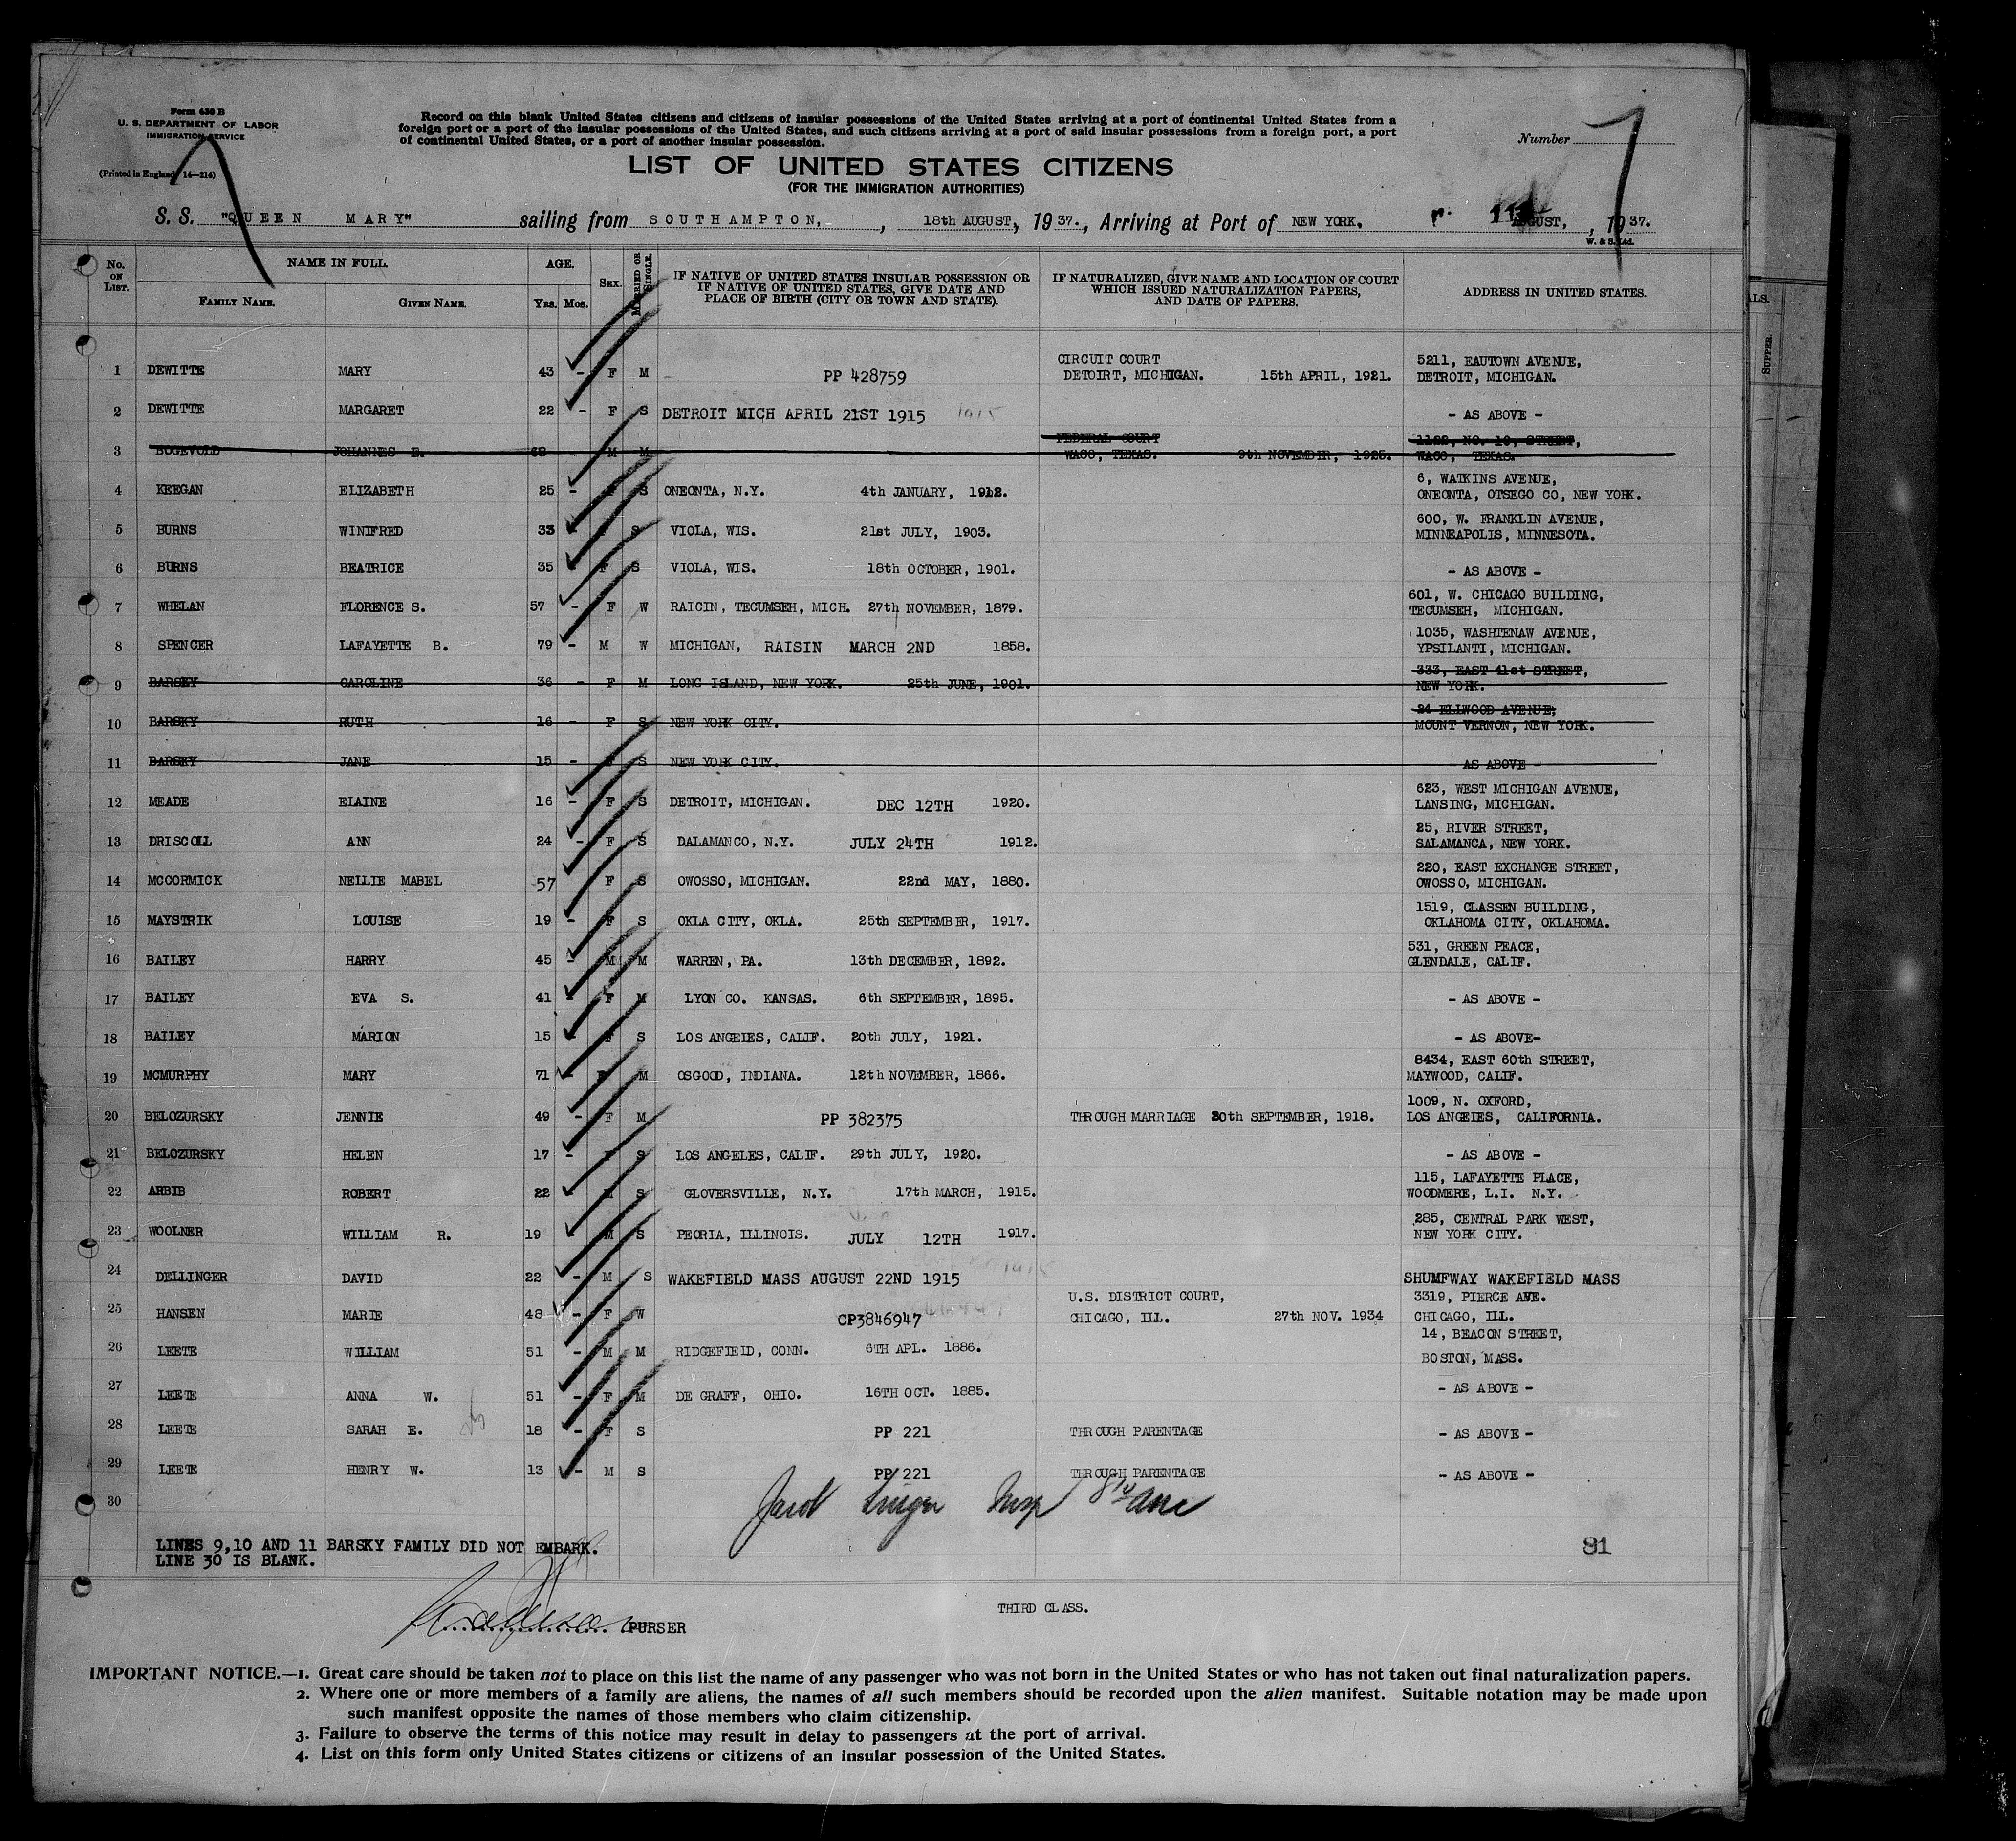 Form 630 B
U. S. DEPARTMENT OF LABOR
IMMIGRATION SERVICE
(Printed in England 14—214)
Record on this blank United States citizens and citizens of insular possessions of the United States arriving at a port of continental United States from a
foreign port or a port of the insular possessions of the United States, and such citizens arriving at a port of said insular possessions from a foreign port, a port
of continental United States, or a port of another insular possession.
Number
LIST OF UNITED STATES CITIZENS
(FOR THE IMMIGRATION AUTHORITIES)
S. S. "QUEEN MARY" sailing from SOUTHAMPTON, , 18th AUGUST, 1937., Arriving at Port of NEW YORK. AUGUST, , 1937.
W. & S. Ltd.
No. ON LIST. NAME IN FULL. AGE. SEX. MARRIED OR SINGLE. IF NATIVE OF UNITED STATES INSULAR POSSESSION OR IF NATIVE OF UNITED STATES, GIVE DATE AND PLACE OF BIRTH (CITY OR TOWN AND STATE). IF NATURALIZED, GIVE NAME AND LOCATION OF COURT WHICH ISSUED NATURALIZATION PAPERS, AND DATE OF PAPERS. ADDRESS IN UNITED STATES.
FAMILY NAME. GIVEN NAME. YRS. MOS.
1 DEWITTE MARY 43 - F M PP 428759 CIRCUIT COURT DETOIRT, MICHIGAN. 15th APRIL, 1921. 5211, EAUTOWN AVENUE, DETROIT, MICHIGAN.
2 DEWITTE MARGARET 22 - F S DETROIT MICH APRIL 21ST 1915 1915 - AS ABOVE -
3 BOGEVOLD JOHANNES E. 68 M M FEDERAL COURT WACO, TEXAS. 9th NOVEMBER, 1925. 1122, NO. 10, STREET, WACO, TEXAS.
4 KEEGAN ELIZABETH 25 - F S ONEONTA, N.Y. 4th JANUARY, 1912. 6, WATKINS AVENUE, ONEONTA, OTSEGO CO, NEW YORK.
5 BURNS WINIFRED 33 F S VIOLA, WIS. 21st JULY, 1903. 600, W. FRANKLIN AVENUE, MINNEAPOLIS, MINNESOTA.
6 BURNS BEATRICE 35 F S VIOLA, WIS. 18th OCTOBER, 1901. - AS ABOVE -
7 WHELAN FLORENCE S. 57 - F W RAICIN, TECUMSEH, MICH. 27th NOVEMBER, 1879. 601, W. CHICAGO BUILDING, TECUMSEH, MICHIGAN.
8 SPENCER LAFAYETTE B. 79 - M W MICHIGAN, RAISIN MARCH 2ND 1858. 1035, WASHTENAW AVENUE, YPSILANTI, MICHIGAN.
9 BARSKY CAROLINE 36 - F M LONG ISLAND, NEW YORK. 25th JUNE, 1901. 333, EAST 41st STREET, NEW YORK.
10 BARSKY RUTH 16 - F S NEW YORK CITY. 24 ELLWOOD AVENUE, MOUNT VERNON, NEW YORK.
11 BARSKY JANE 15 - F S NEW YORK CITY. - AS ABOVE -
12 MEADE ELAINE 16 - F S DETROIT, MICHIGAN. DEC 12TH 1920. 623, WEST MICHIGAN AVENUE, LANSING, MICHIGAN.
13 DRISCOLL ANN 24 - F S DALAMANCO, N.Y. JULY 24TH 1912. 25, RIVER STREET, SALAMANCA, NEW YORK.
14 MCCORMICK NELLIE MABEL 57 F S OWOSSO, MICHIGAN. 22nd MAY, 1880. 220, EAST EXCHANGE STREET, OWOSSO, MICHIGAN.
15 MAYSTRIK LOUISE 19 - F S OKLA CITY, OKLA. 25th SEPTEMBER, 1917. 1519, CLASSEN BUILDING, OKLAHOMA CITY, OKLAHOMA.
16 BAILEY HARRY 45 - M M WARREN, PA. 13th DECEMBER, 1892. 531, GREEN PEACE, GLENDALE, CALIF.
17 BAILEY EVA S. 41 - F M LYON CO. KANSAS. 6th SEPTEMBER, 1895. - AS ABOVE -
18 BAILEY MARION 15 - F S LOS ANGElES, CALIF. 20th JULY, 1921. - AS ABOVE-
19 MCMURPHY MARY 71 - F M OSGOOD, INDIANA. 12th NOVEMBER, 1866. 8434, EAST 60th STREET, MAYWOOD, CALIF.
20 BELOZURSKY JENNIE 49 - F M PP 382375 THROUGH MARRIAGE 30th SEPTEMBER, 1918. 1009, N. OXFORD, LOS ANGElES, CALIFORNIA.
21 BELOZURSKY HELEN 17 - F S LOS ANGELES, CALIF. 29th JULY, 1920. - AS ABOVE -
22 ARBIB ROBERT 22 - M S GLOVERSVILLE, N.Y. 17th MARCH, 1915. 115, LAFAYETTE PLACE, WOODMERE, L.I. N.Y.
23 WOOLNER WILLIAM R. 19 M S PEORIA, ILLINOIS. JULY 12TH 1917. 285, CENTRAL PARK WEST, NEW YORK CITY.
24 DELLINGER DAVID 22 - M S WAKEFIELD MASS AUGUST 22ND 1915 1915 SHUMFWAY WAKEFIELD MASS
25 HANSEN MARIE 48 - F W CP3846947 U.S. DISTRICT COURT, CHICAGO, ILL. 27th NOV. 1934 3319, PIERCE AVE. CHICAGO, ILL.
26 LEETE WILLIAM 51 - M M RIDGEFIELD, CONN. 6TH APL. 1886. 14, BEACON STREET, BOSTON, MASS.
27 LEETE ANNA W. 51 - F M DE GRAFF, OHIO. 16TH OCT. 1885. - AS ABOVE -
28 LEETE SARAH E. 18 - F S PP 221 THROUGH PARENTAGE - AS ABOVE -
29 LEETE HENRY W. 13 - M S PP 221 THROUGH PARENTAGE - AS ABOVE -
30
LINES 9,10 AND 11 BARSKY FAMILY DID NOT EMBARK.
LINE 30 IS BLANK.
81
PURSER
THIRD CLASS.
IMPORTANT NOTICE.—1. Great care should be taken not to place on this list the name of any passenger who was not born in the United States or who has not taken out final naturalization papers.
2. Where one or more members of a family are aliens, the names of all such members should be recorded upon the alien manifest. Suitable notation may be made upon
such manifest opposite the names of those members who claim citizenship.
3. Failure to observe the terms of this notice may result in delay to passengers at the port of arrival.
4. List on this form only United States citizens or citizens of an insular possession of the United States.
LS.
SUPPER.